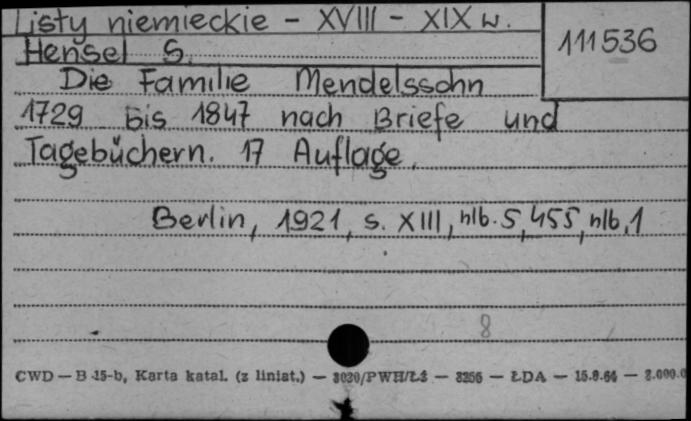 Listy niemieckie - XVIII - XIX w.
111536
Hensel S.
Die Familie Mendelssohn
1729 bis 1847 nach Briefe und
Tagebüchern. 17 Auflage.
Berlin, 1921, s. XIII, nlb. 5, 455, nlb, 1
8
CWD — B-15-b, Karta katal. (z liniat.) — 3020/PWH/Łż — 3256 — ŁDA — 15.9.64 — 2.000.0